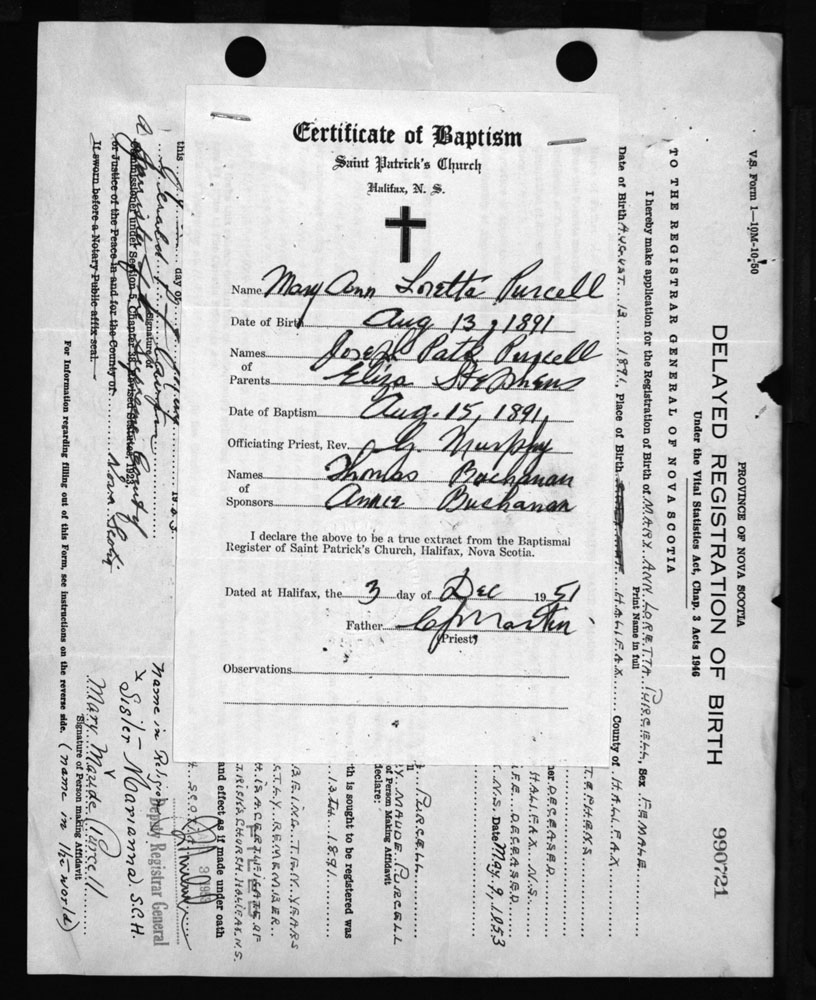 Certificate of Baptism
Saint Patrick's Church
Halifax, N. S.
Name Mary Ann Loretta Purcell
Date of Birth Aug 13, 1891
Names Joseph Patk Purcell
of
Parents Eliza Stephens
Date of Baptism Aug. 15, 1891
Officiating Priest, Rev. G. Murphy
Names Thomas Buchanan
of
Sponsors Annie Buchanan
I declare the above to be a true extract from the Baptismal
Register of Saint Patrick's Church, Halifax, Nova Scotia.
Dated at Halifax, the 3 day of Dec 1951
Father C J Martin
(Priest)
Observations
V.S. Form 1—10M-10-50
PROVINCE OF NOVA SCOTIA
DELAYED REGISTRATION OF BIRTH 990721
Under the Vital Statistics Act, Chap. 3 Acts 1946
TO THE REGISTRAR GENERAL OF NOVA SCOTIA
I hereby make application for the Registration of Birth of MARY ANN LORETTA PURCELL, Sex FEMALE
Print Name in full
Date of Birth AUGUST 13 1891, Place of Birth HALIFAX County of HALIFAX
TEPHENS
HALIFAX N.S.
her DECEASED
IFE DECEASED
N.S. Date May 9, 1953
PURCELL
Y MAUDE PURCELL
of Person Making Affidavit
declare:
th is sought to be registered was
13th 1891
BEING TEN YEARS
CTLY REMEMBER
H IS A CERTIFICATE OF
TRICK'S CHURCH HALIFAX N.S.
and effect as if made under oath
this day of
Signature of
a
Commissioner under Section 5, Chapter 38, Revised Statutes, 1923
or Justice of the Peace in and for the County of Nova Scotia
If sworn before a Notary Public affix seal.
Deputy Registrar General
Name in Religion
x Sister Marianna S.C.H.
Mary Maude Purcell
Signature of Person making Affidavit
(name in the world)
For Information regarding filling out of this Form, see instructions on the reverse side.